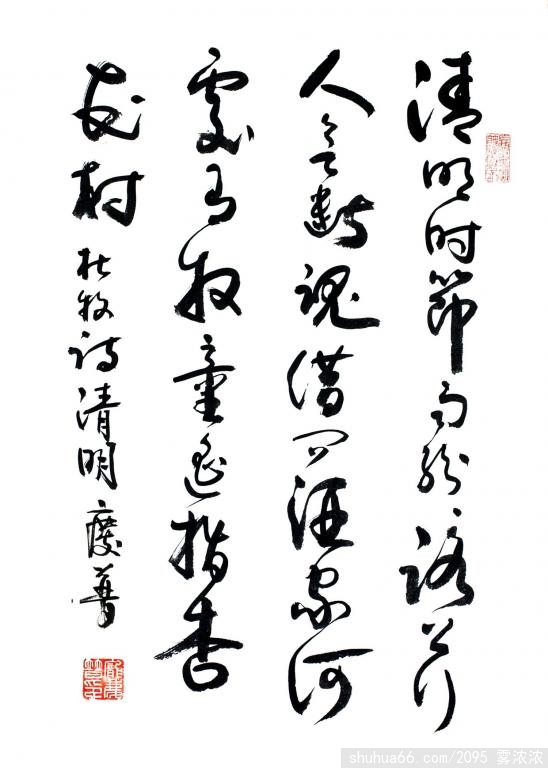 清明时節雨纷〻路上行
人欲断魂借问酒家何
處有牧童遥指杏
花村
杜牧诗清明 慶普
shuhua66.com/2095 雾浓浓